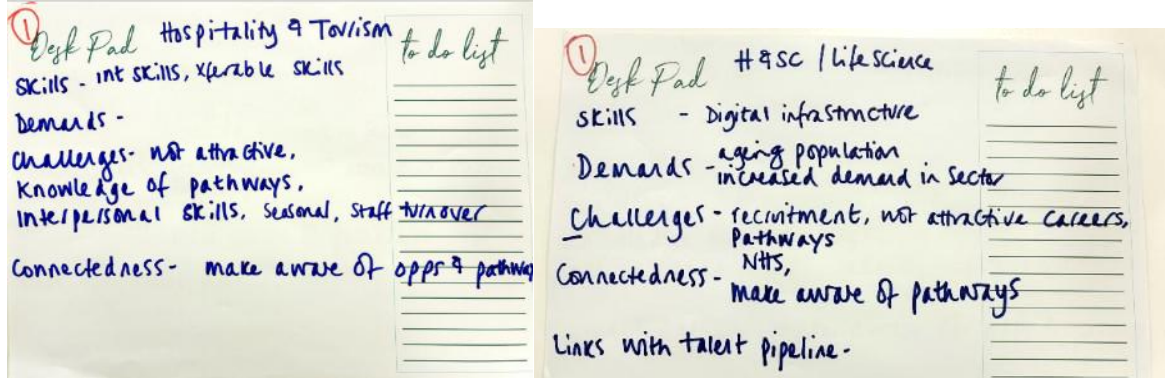 ①
Desk Pad Hospitality & Tourism to do list
Skills - int skills, xferable skills
Demands -
Challenges - not attractive,
Knowledge of pathways,
Interpersonal skills, Seasonal, Staff turnover
Connectedness - make aware of opps & pathway
①
Desk Pad H&SC / Life science to do list
Skills - Digital infrastructure
Demands - ageing population
increased demand in sector
Challenges - recruitment, not attractive careers,
Pathways
Connectedness - NHS,
make aware of pathways
Links with talent pipeline -